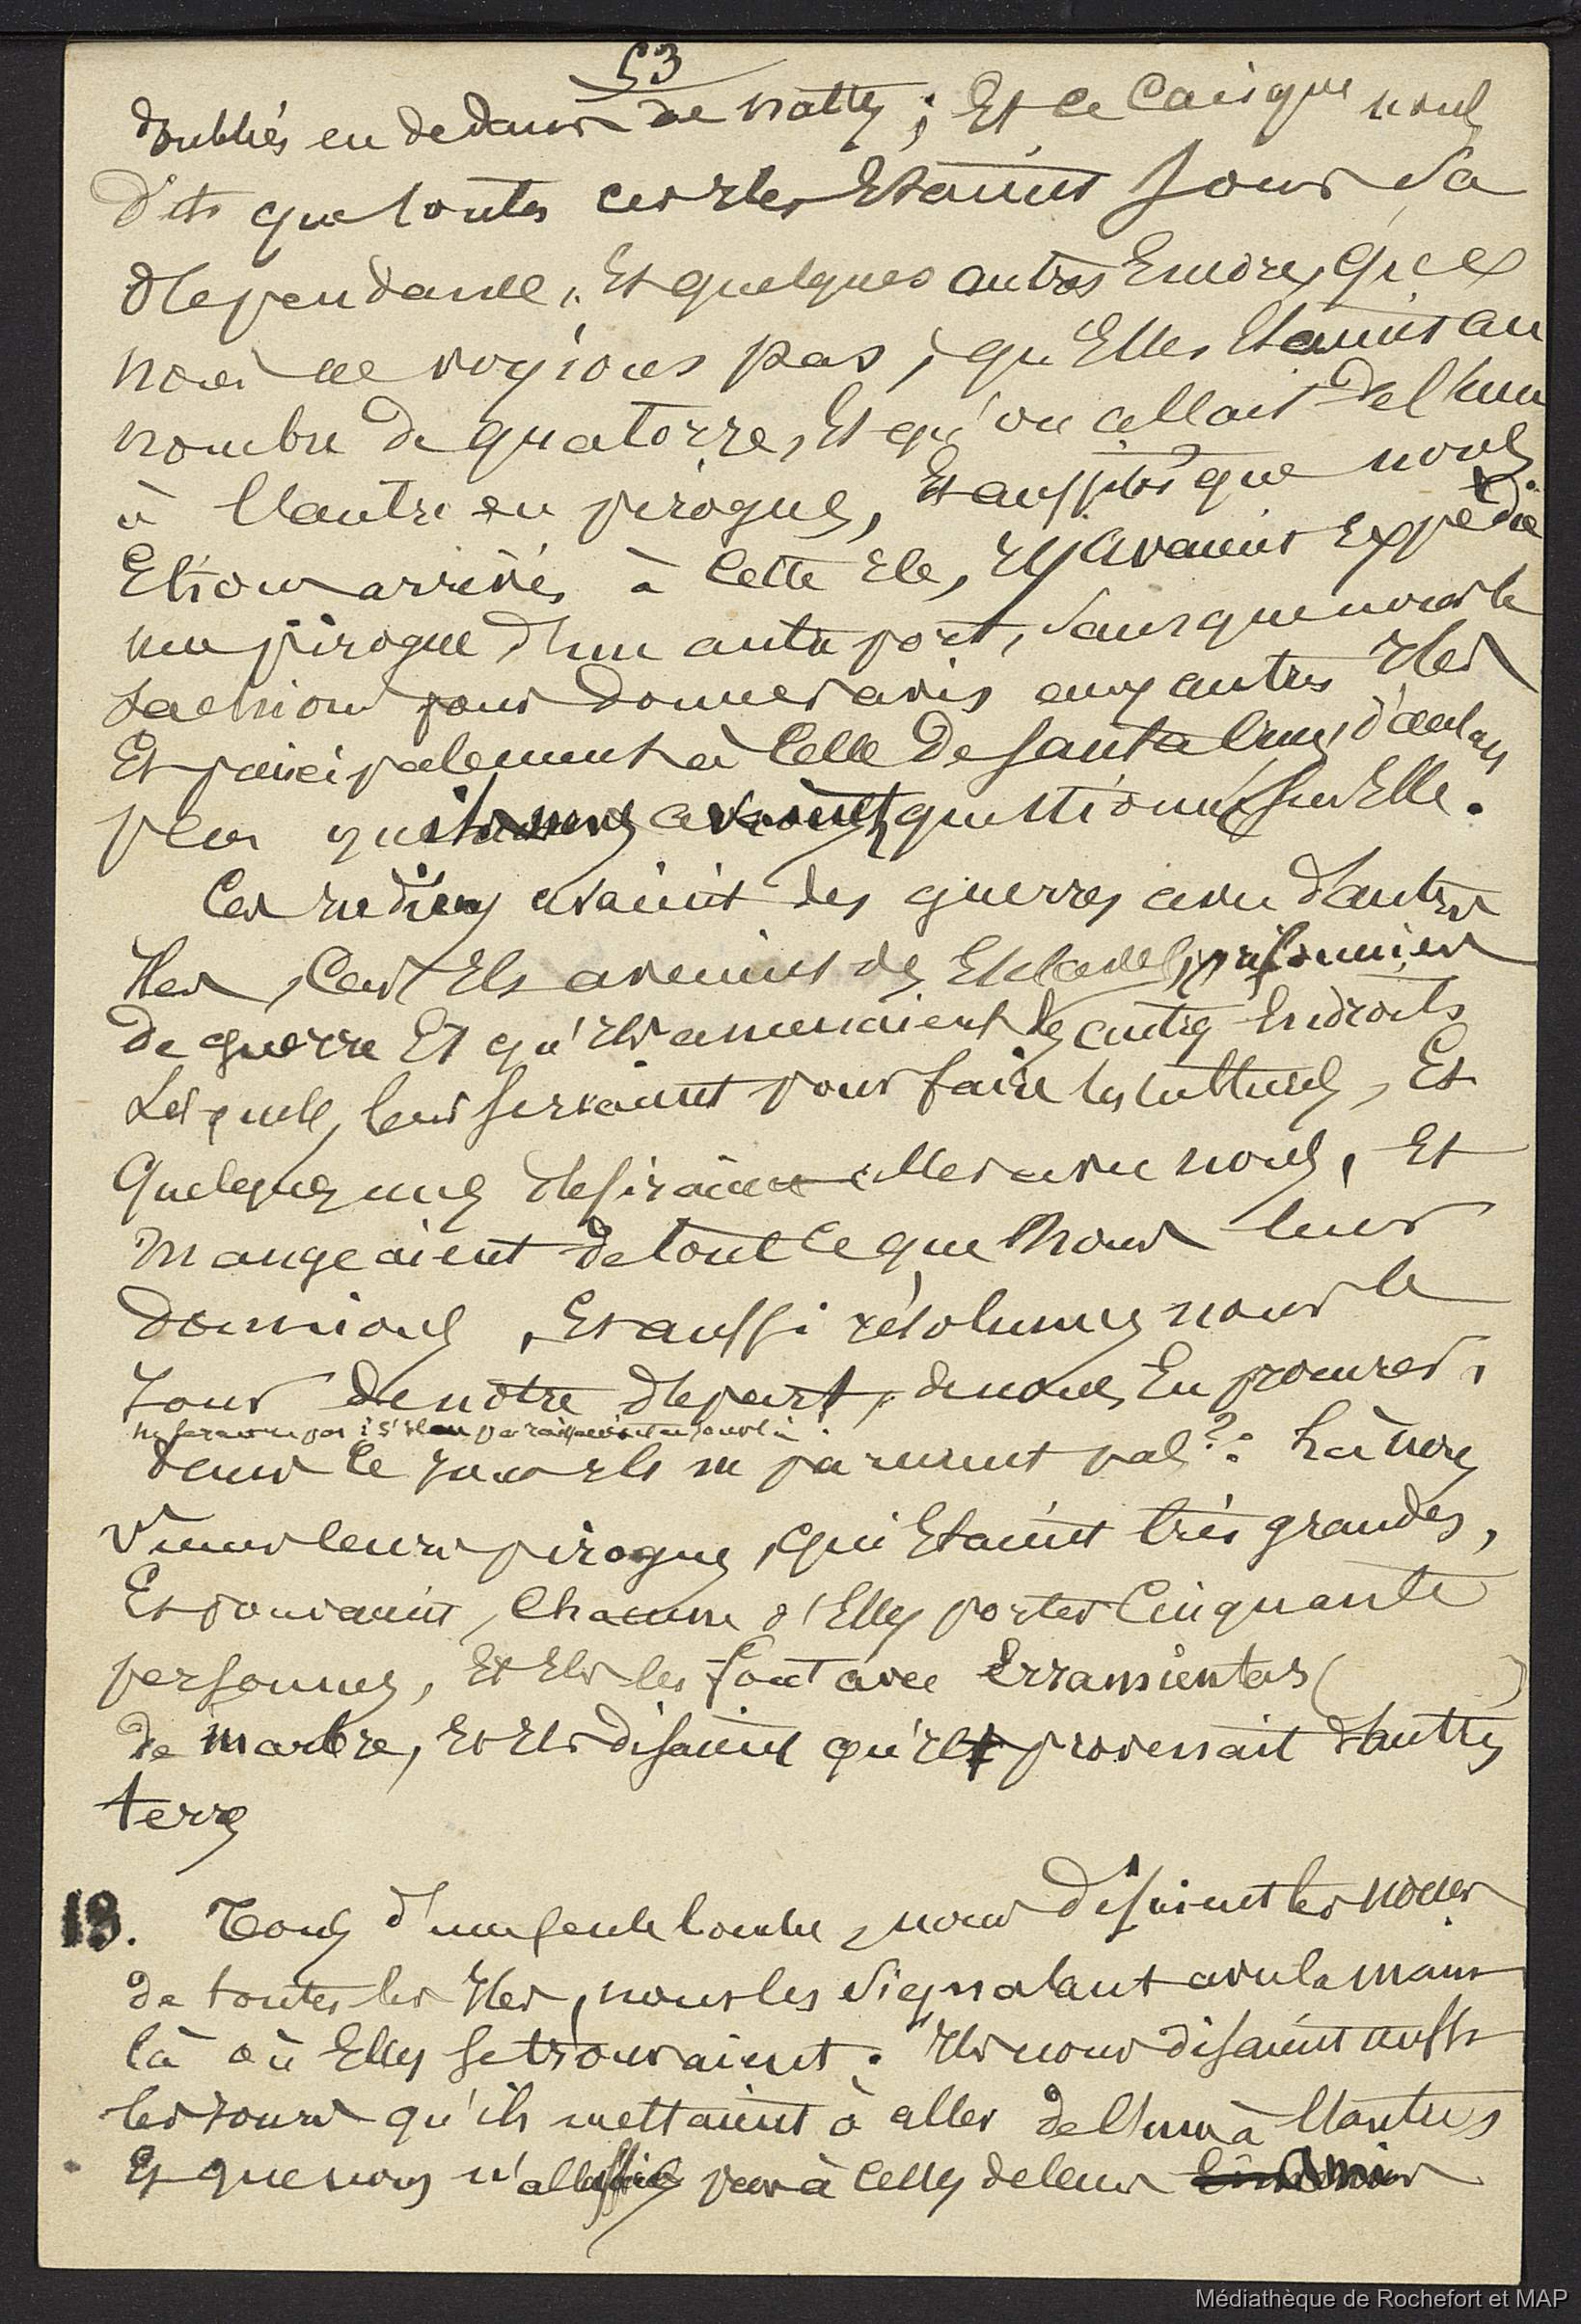 53
doublés en dedans de nattes ; Et ce Caïsque nous
dits que toutes ces Iles Etaient sous sa
dependance, Et quelques autres Encore, que
nous ne voyions pas, qu'Elles Etaient au
nombre de quatorze, Et qu'on allait de l'une
à l'autre en pirogues, Et aussitôt que nous
Etions arrivés à Cette Ile, Ils avaient Expédié
une pirogue d'un autre port, sans que nous le
sachions pour donner avis aux autres Iles
Et principalement à Celle de Santa Cruz, d'autant
plus qu'ils nous avaient questionnés sur Elle.
Ces Indiens avaient des guerres avec d'autres
Iles, Car Ils avaient des Esclaves, prisonniers
de guerre Et qu'Ils amenaient des autres Endroits
Lesquels, leur servaient pour faire les cultures, Et
Quelques uns desiraient aller avec nous, Et
mangeaient de tout ce que Nous leur
donnions, Et aussi résolumes nous le
jour de notre depart, de nous En procurer,
dans le jour Ils ne parurent pas ?. Là nous
vimes leurs pirogues, qui Etaient très grandes,
Et pouvaient, Chacune d'Elles porter Cinquante
personnes, Et Ils les font avec Erramientas ( )
de marbre, Et Ils disaient qu'Il provenait d'autres
terres
18. Tous d'une seule bouche, nous disaient les noms
de toutes les Iles, nous les signalant avec la main
là où Elles se trouvaient. Ils nous disaient aussi
les jours qu'ils mettaient à aller de l'une à l'autres
Et que nous n'allassions pas à Celles de leurs